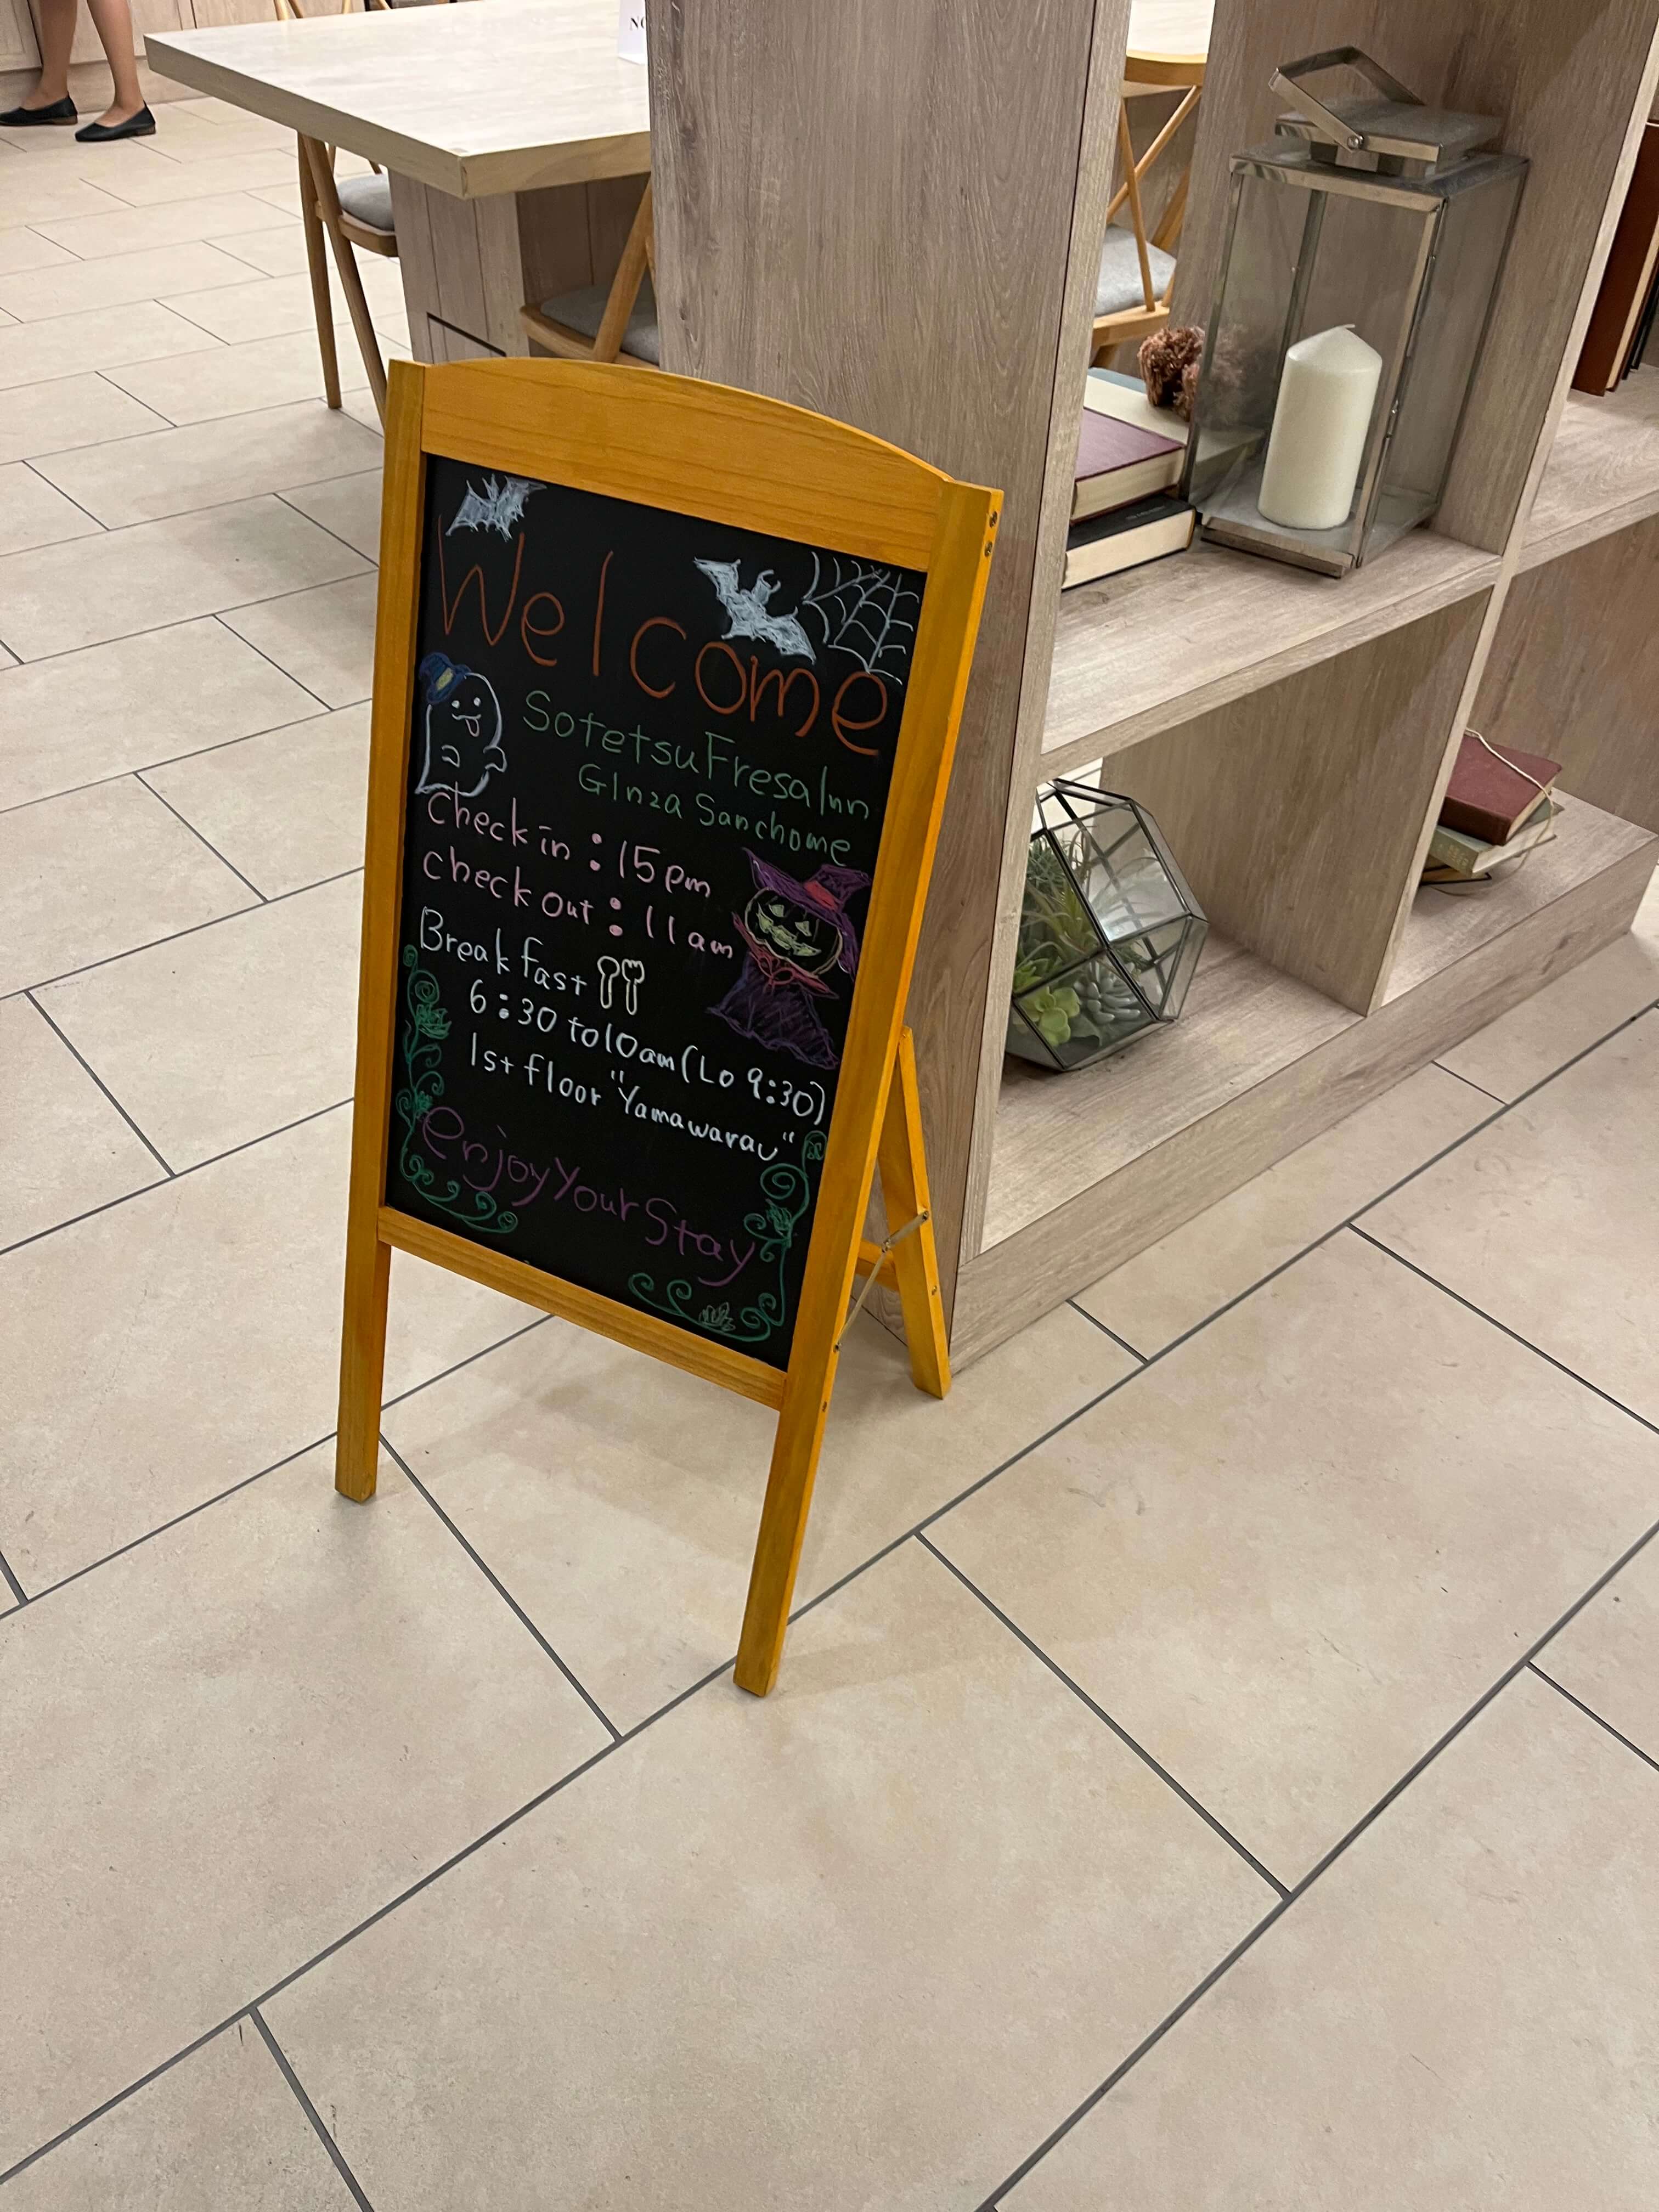 Welcome
Sotetsu Fresa Inn
GInza Sanchome
check in : 15pm
check out : 11am
Breakfast
6:30 to 10am (Lo 9:30)
1st floor "Yamawarau"
enjoy Your Stay